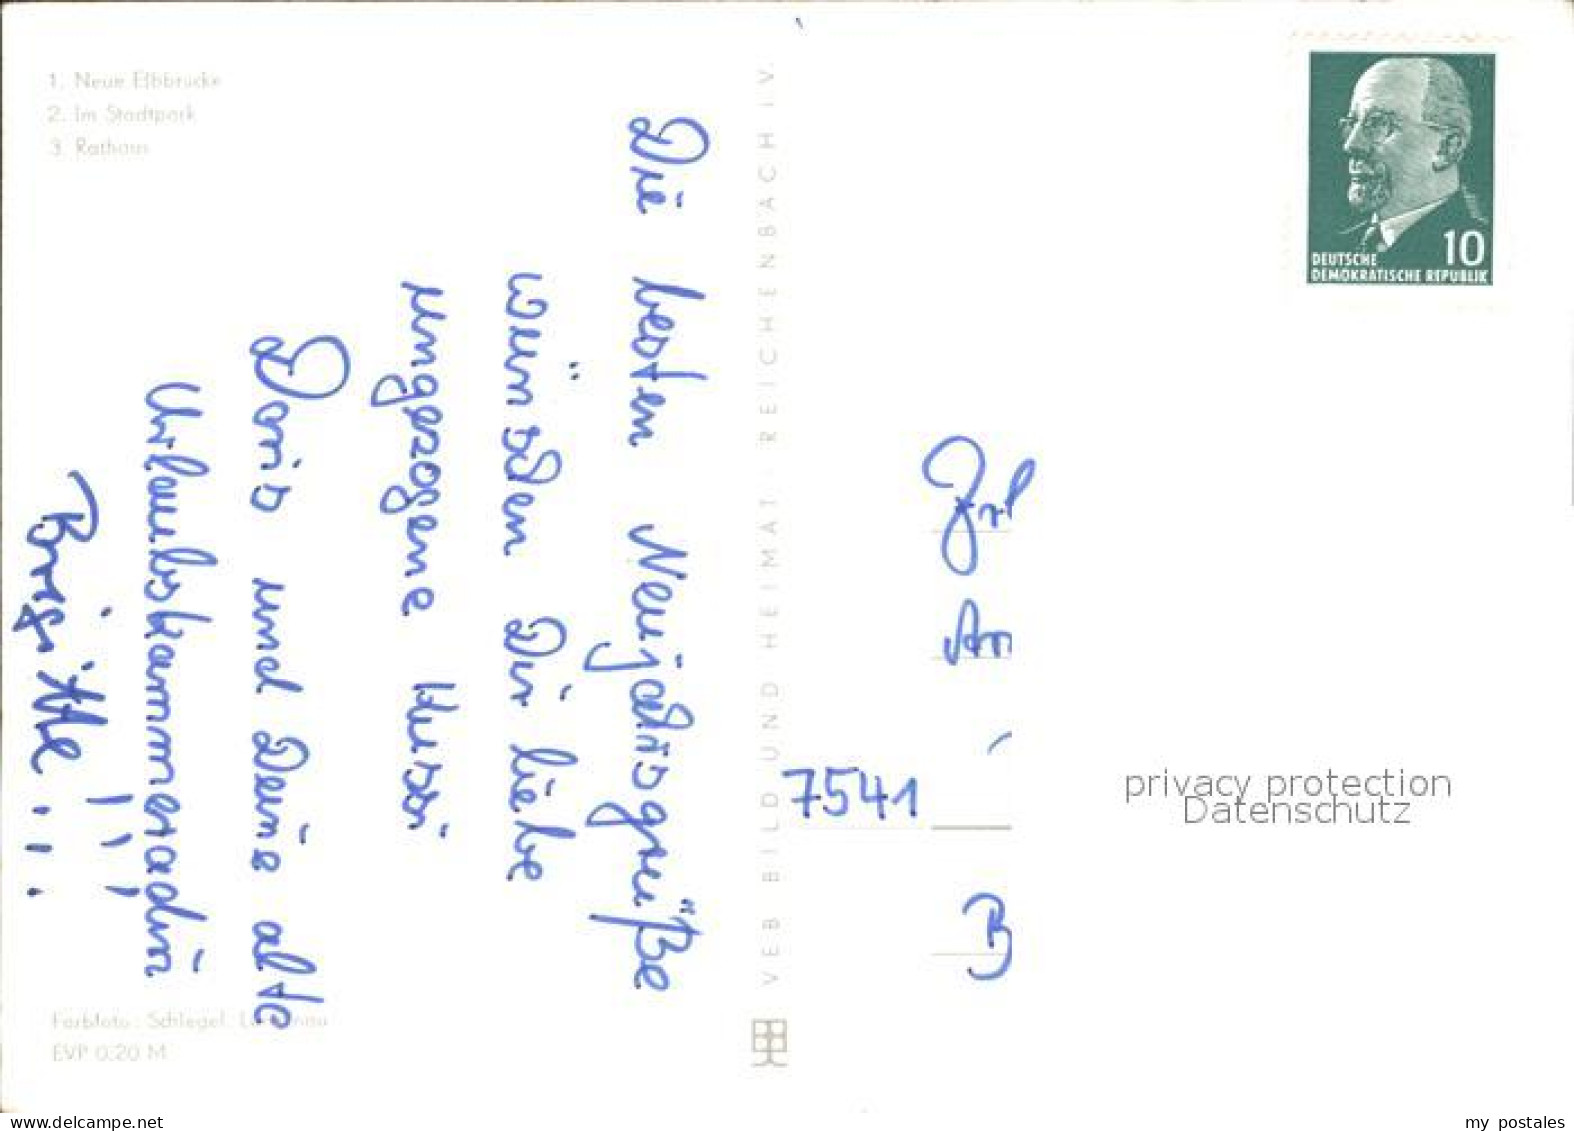 1. Neue Elbbrücke
2. Im Stadtpark
3. Rathaus
Die besten Neujahrsgrüße
wünschen Dir liebe
ungezogene Hussi
Doris und Deine alte
Urlaubskammeradin
Brigitte !!!
!!!
Farbfoto: Schlegel,
EVP 0.20 M
VEB BILD UND HEIMAT REICHENBACH I. V.
10
DEUTSCHE
DEMOKRATISCHE REPUBLIK
Frl
An
7541
B
privacy protection
Datenschutz
www.delcampe.net
my_postales